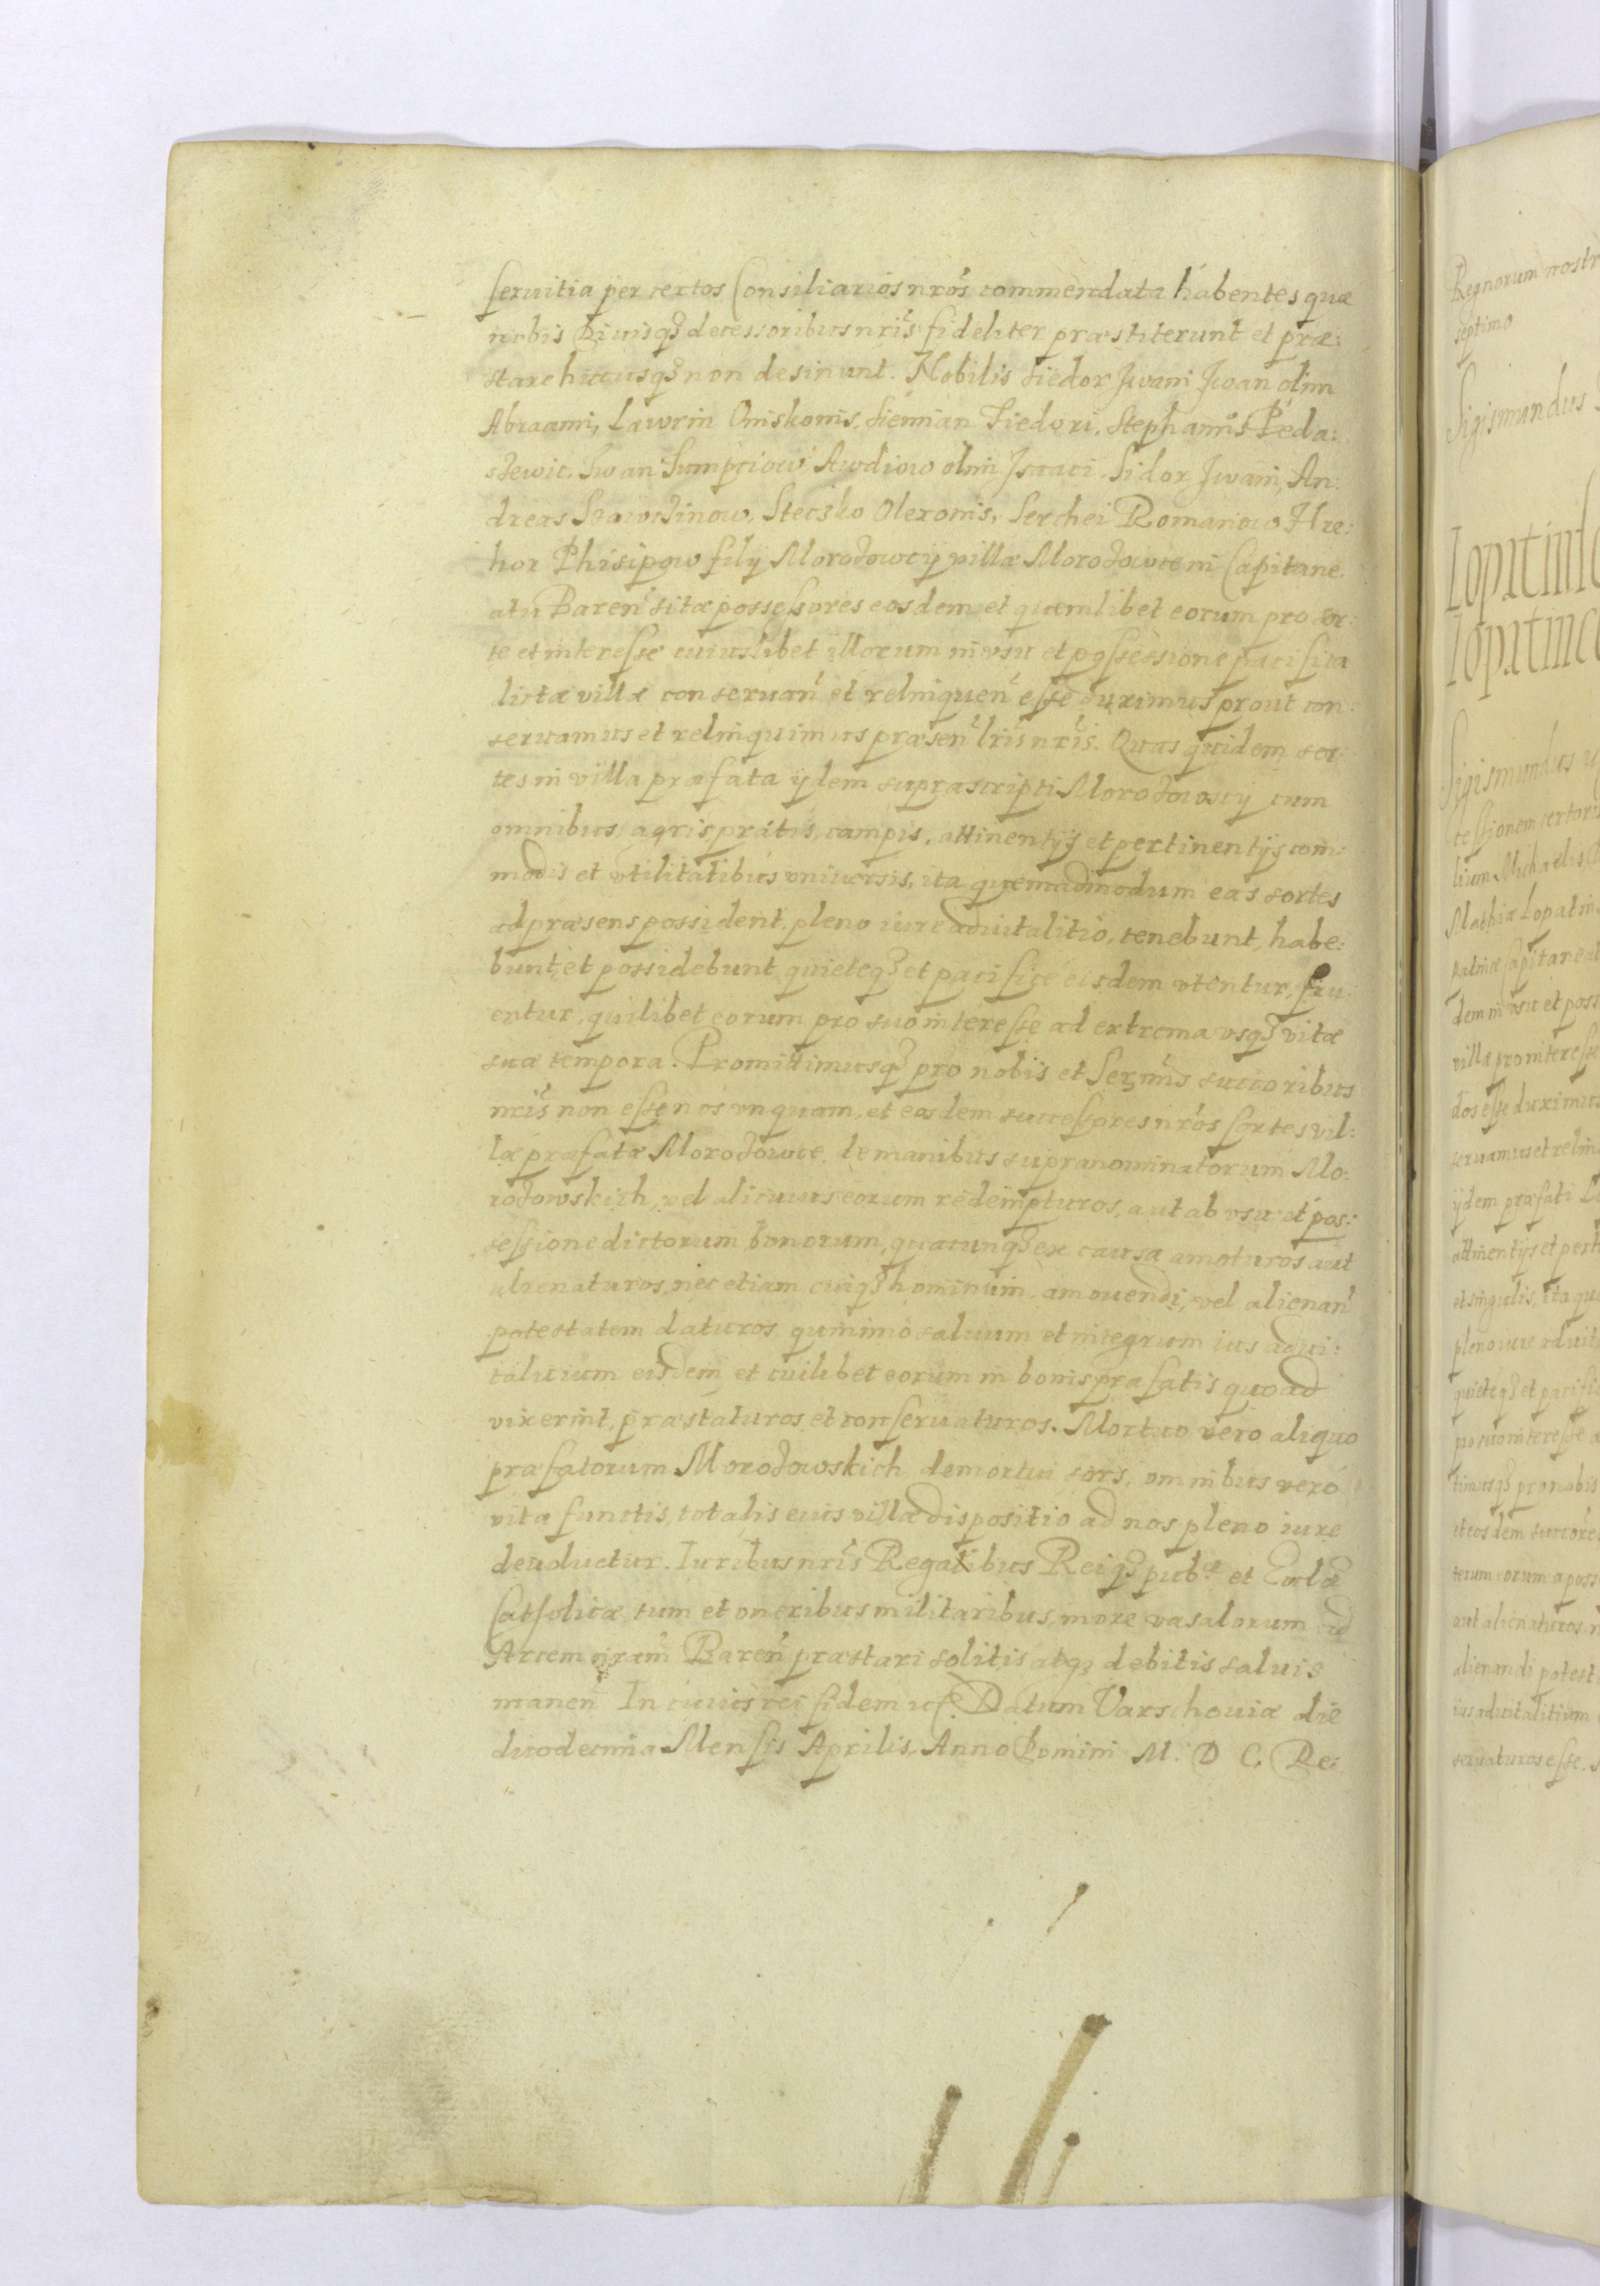 seruitia per certos Consiliarios nr̃os commendata habentes quæ
nobis Diuisq́ȝ decessoribus nr̃is fideliter præstiterunt et præ:
stare hucusq́ȝ non desinunt. Nobilis Fiedor Iwani Iwan olim
Abraami, Lawrin Oniskonis, Siemian Fiedori, Stephanus Peda:
Iwan Awdiow olim Isaaci, Sidor Iwani, An:
dreas Steczko Olexonis, Serchei Romanow Hre:
hor Phisipow filÿ Morozowcÿ villæ Morozowce in Capitane:
atu Barenˀ sitæ possessores eosdem et quemlibet eorum pro sor:
te et interesse cuiuslibet illorum in vsu et possessione pacifica
dictæ villæ conseruanˀ et relinquenˀ esse duximus prout con:
seruamus et relinquimus præsenˀ lr̃is nr̃is. Quas quidem sor:
tes in villa præfata ÿdem suprascripti Morozowscÿ cum
omnibus agris pratis, campis, attinentÿs et pertinentÿs com:
modis et vtilitatibus vniuersis, ita quemadmodum eas sortes
ad præsens possident, pleno iure aduitalitio, tenebunt, habe:
bunt, et possidebunt, quieteq́ȝ et pacifice eisdem vtentur, fru:
entur, quilibet eorum pro suo interesse ad extrema vsq́ȝ vitæ
suæ tempora. Promittimusq́ȝ pro nobis et Ser̃mis succoribus
nr̃is non esse nos vnquam, et eosdem successores nr̃os sortes vil:
læ præfatæ Morozowce, de manibus supranominatorum Mo:
rozowskich, vel alicuius eorum redempturos, aut ab vsu et pos:
sessione dictorum bonorum, quacunq́ȝ ex causa amoturos aut
alienaturos, nec etiam cuiq́ȝ hominum, amouendi, vel alienanˀ
potestatem daturos quinimo saluum et integrum ius adui:
talicium eisdem et cuilibet eorum in bonis præfatis quoad
vixerint, præstaturos et conseruaturos. Mortuo vero aliquo
præfatorum Morozowskich demortui sors, omnibus vero
vita functis, totalis eius villæ dispositio ad nos pleno iure
deuoluetur. Iuribus nr̃is Regalibus Reiq́ȝ pubcæ et Ecclæ
Catholicæ, tum et oneribus militaribus, more vasalorum ad
Arcem nr̃am Barenˀ præstari solitis atqȝ debitis saluis
manenˀ In cuius rei fidem Datum Varschouiæ die
duodecima Mensis Aprilis, Anno Domini M. D C. Re:
Regnorum nostr
septimo
Sigismundus
Sigismundus
Mathiæ Lopatin
dem in vsu et poss
villæ pro interesse
dos esse duximus
seruamus et relin
ÿdem præfati
attinentÿs et pert
et singulis, ita qu
pleno iure aduit
quieteq́ȝ et pacific
pro suo interesse a
timusq́ȝ pro nobis
aut alienaturos, n
alienandi potest
ius aduitalitium
seruaturos esse.